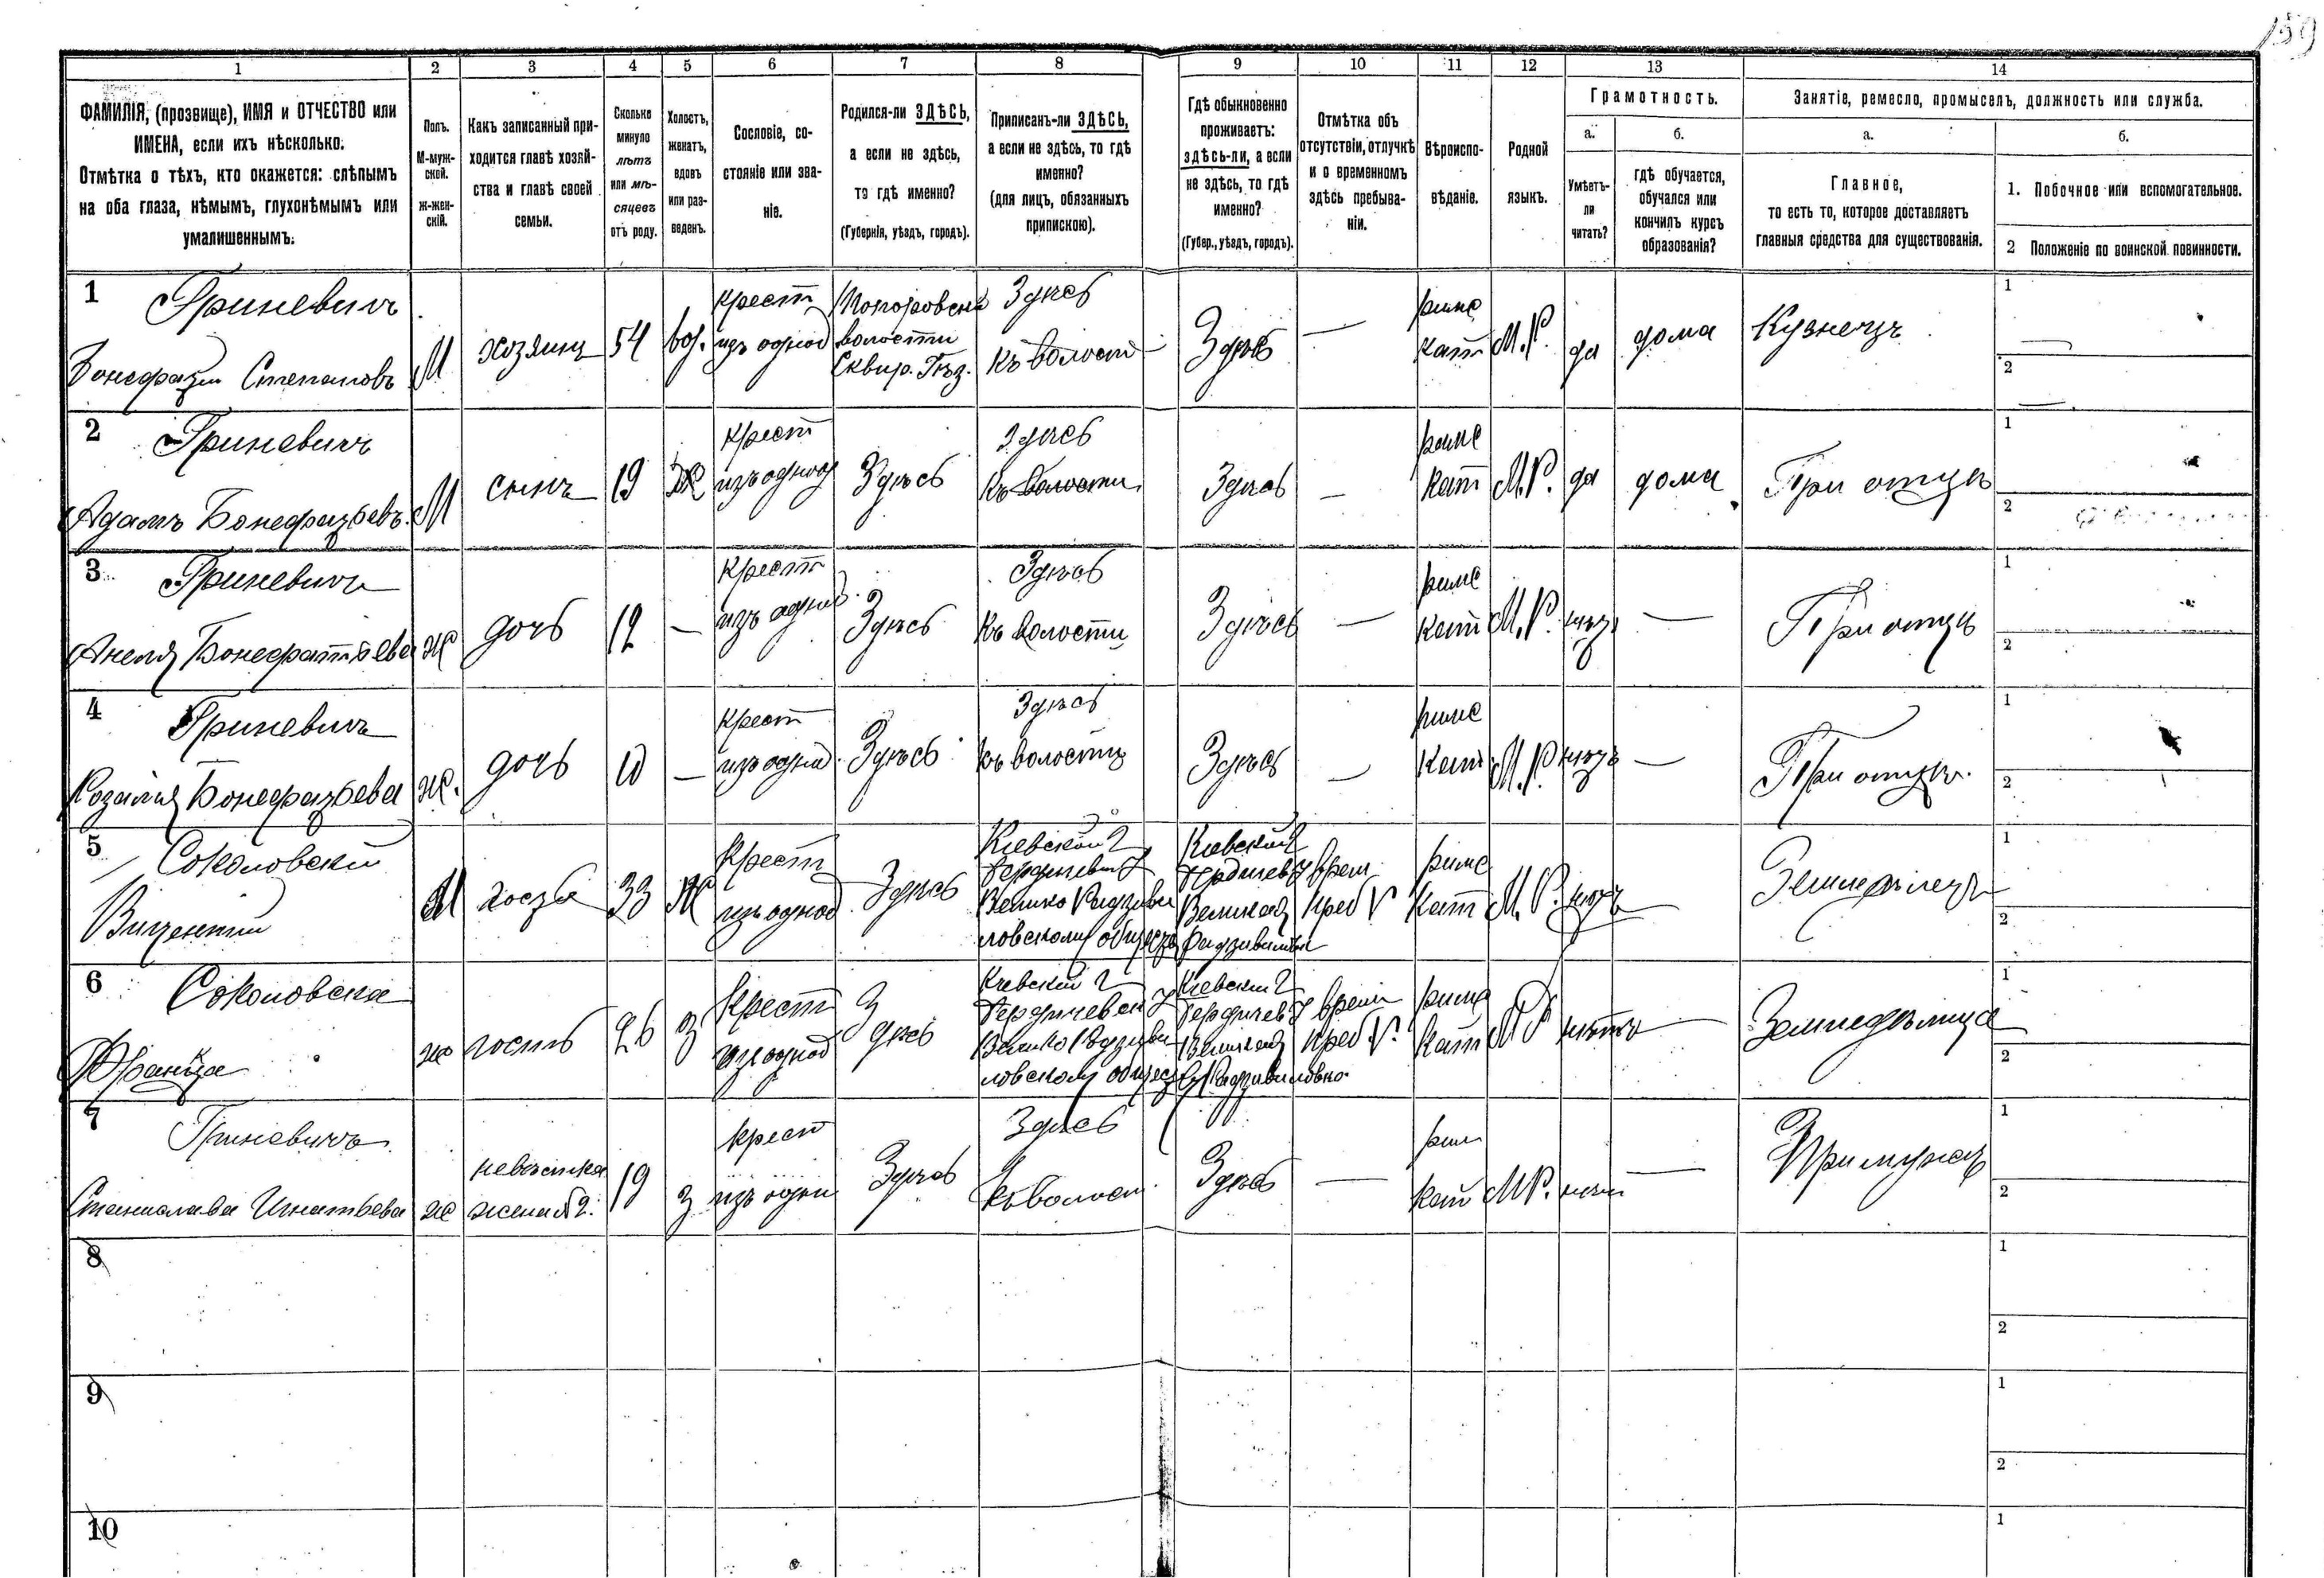 159
1 2 3 4 5 6 7 8 9 10 11 12 13 14
ФАМИЛІЯ, (прозвище), ИМЯ и ОТЧЕСТВО или
ИМЕНА, если ихъ нѣсколько.
Отмѣтка о тѣхъ, кто окажется: слѣпымъ
на оба глаза, нѣмымъ, глухонѣмымъ или
умалишеннымъ.
Полъ.
М-муж-
ской.
ж-жен-
скій.
Какъ записанный при-
ходится главѣ хозяй-
ства и главѣ своей
семьи.
Сколько
минуло
лѣтъ
или мѣ-
сяцевъ
отъ роду.
Холостъ,
женатъ,
вдовъ
или раз-
веденъ.
Сословіе, со-
стояніе или зва-
ніе.
Родился-ли ЗДѢСЬ,
а если не здѣсь,
то гдѣ именно?
(Губернія, уѣздъ, городъ).
Приписанъ-ли ЗДѢСЬ,
а если не здѣсь, то гдѣ
именно?
(для лицъ, обязанныхъ
припискою).
Гдѣ обыкновенно
проживаетъ:
здѣсь-ли, а если
не здѣсь, то гдѣ
именно?
(Губер., уѣздъ, городъ).
Отмѣтка объ
отсутствіи, отлучкѣ
и о временномъ
здѣсь пребыва-
ніи.
Вѣроиспо-
вѣданіе.
Родной
языкъ.
Грамотность.
а.
Умѣетъ-
ли
читать?
б.
гдѣ обучается,
обучался или
кончилъ курсъ
образованія?
Занятіе, ремесло, промыселъ, должность или служба.
а.
Главное,
то есть то, которое доставляетъ
главныя средства для существованія.
б.
1. Побочное или вспомогательное.
2 Положеніе по воинской повинности.
1 Гриневичъ
Бонефацiй Степановъ
М
хозяинъ
54
вд.
крест
изъ однод
волости
Сквир. Уѣз.
Здѣсь
къ волости
Здѣсь
—
римс
кат
М.Р.
да
дома
Кузнецъ
1
2
2 Гриневичъ
Адамъ Бонефазьевъ
М
сынъ
19
Ж
крест
изъ однод
Здѣсь
Здѣсь
къ волости
Здѣсь
—
римс
кат
М.Р.
да
дома
При отцѣ
1
2
3 Гриневичъ
Анеля Бонефатьева
ж
дочь
12
—
крест
изъ однод
Здѣсь
Здѣсь
къ волости
Здѣсь
—
римс
кат
М.Р.
нѣтъ
—
При отцѣ
1
2
4 Гриневичъ
Розалія Бонефазьева
ж.
дочь
10
—
крест
изъ однод
Здѣсь
Здѣсь
къ волости
Здѣсь
—
римс
кат
М.Р.
нѣтъ
—
При отцѣ.
1
2
5 Соколовскій
Вицентій
М
гость
33
Ж
Крест
изъ однод
Здѣсь
Кіевской г
Бердичевск у
Велико Радзиви
ловскому общест
Кіевской г
Бердичев у
Великая
Радзивиловка
врем
преб
римс
кат
М.Р.
нѣтъ
—
Земледѣлецъ
1
2
6 Соколовска
Францка
ж
гость
26
з
Крест
изъ однод
Здѣсь
Кіевской г
Бердичевск у
Велико Радзиви
ловскому общест
Кіевской г
Бердичев у
Великая
Радзивиловка
врем
преб
римс
кат
М Р
нѣтъ
—
Земледѣлица
1
2
7 Гриневичъ
Станислава Игнатьева
ж
невѣстка
жена № 2.
19
з
крест
изъ одн
Здѣсь
Здѣсь
къ волост
Здѣсь
—
рим
кат
М Р.
нѣт
—
При мужѣ
1
2
8
1
2
9
1
2
10
1